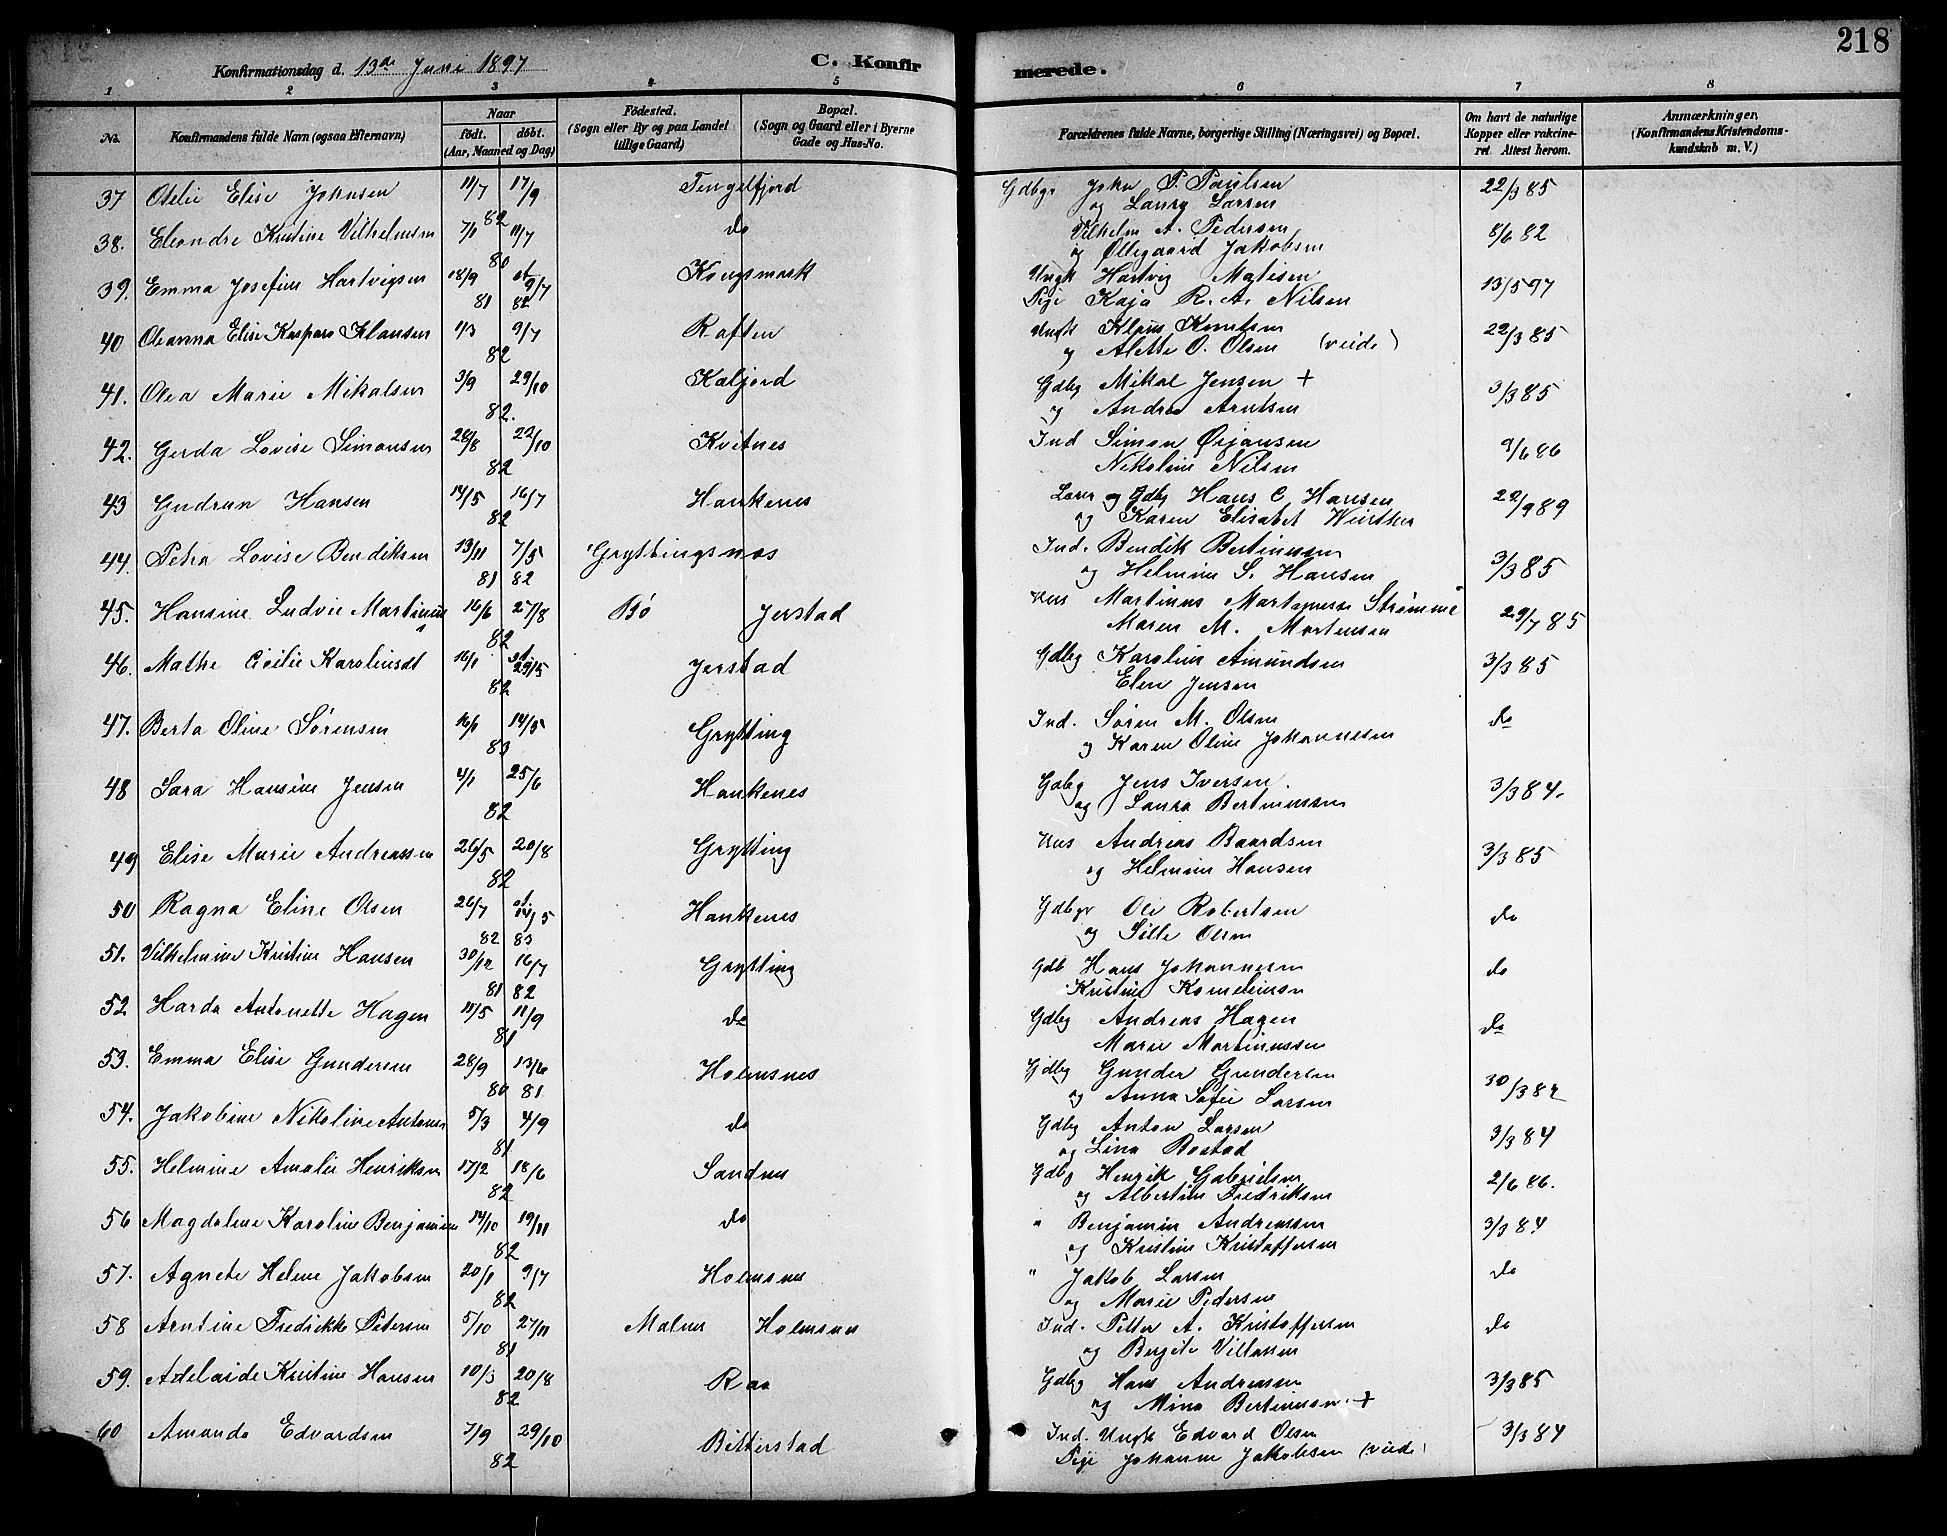 218
Konfirmationsdag d. 13de Juni 1897 C. Konfirmerede.
1 2 3 4 5 6 7 8
No. Konfirmandens fulde Navn (ogsaa Efternavn) Naar født. døbt. (Aar, Maaned og Dag) Fødested. (Sogn eller By og paa Landet tillige Gaard) Bopæl. (Sogn og Gaard eller i Byerne Gade og Hus-No. Forældrenes fulde Navne, borgerlige Stilling (Næringsvei) og Bopæl. Om havt de naturlige Kopper eller vakcineret. Attest herom. Anmærkninger. (Konfirmandens Kristendomskundskab m. V.)
37 Otelie Elise Johnsen 11/7 17/9 82 Tengelfjord Gdbgr John P. Paulsen 22/3 85
og Laura Larsen
38. Eleondre Kristine Vilhelmsen 7/1 11/7 80 do Vilhelm A. Pedersen 8/6 82
og Øllegaard Jakobsen
39. Emma Josefine Hartvigsen 18/9 81 9/7 82 Kongsmark Ungk Hartvig Matisen 13/5 97
Pige Kaja R. A. Nilsen
40 Oleanna Elise Kaspara Klausen 1/3 9/7 82 Raften Ungk Klaus Knutsen 22/3 85
og Alette O. Olsen (viede)
41. Olea Marie Mikalsen 3/9 29/10 82. Kaljord Gdbg Mikal Jensen + 3/3 85
og Andrea Arntsen
42. Gerda Lovise Simonsen 28/8 22/10 82 Kvitnes Ind Simon Ørjansen 9/6 86
Nikoline Nilsen
43 Gudrun Hansen 14/5 16/7 82 Haukenes Lærer og Gdbg Hans C Hansen 22/9 89
og Karen Elisabet Winther
44. Petra Lovise Bendiksen 13/11 81 7/5 82 Gryttingsnæs Ind. Bendik Bertinussen 3/3 85
og Helmine S. Hansen
45. Hansine Ludvie Martinusen 16/6 27/8 82 Bø Jerstad Hus Martinus Strømme 29/7 85
Maren M. Mortensen
46. Mathe Cicilie Karoliusdt 16/1 29/5 82 Jerstad Gdbg Karolius Amundsen 3/3 85
Elen Jensen
47. Berta Oline Sørensen 16/1 14/5 83 Grytting Ind. Søren M. Olsen do
og Karen Oline Johannesen
48 Sara Hansine Jensen 4/1 25/6 82 Haukenes Gdbg Jens Iversen. 3/3 84.
og Laura Bertinussen
49 Elise Marie Andreassen 26/5 20/8 82 Grytting Hus Andreas Baardsen 3/3 85
og Helmine Hansen
50 Ragna Eline Olsen 26/7 82 14/5 83 Haukenes Gdbgr Ole Robertsen do
og Sille Olsen
51. Vilhelmine Kristine Hansen 30/12 81 16/7 82 Grytting Gdb Hans Johannesen do
Kristine Korneliusen
52 Harda Antonette Hagen 15/5 11/9 81 do Gdbg Andreas Hagen do
Marie Martinussen
53. Emma Elise Gundersen 28/9 80 13/6 81 Holmsnes Gdbg Gunder Gundersen 30/3 82
og Anna Sofie Larsen
54. Jakobine Nikoline Antonsen 5/3 4/9 81 do Gdbg Anton Larsen 3/3 84
og Lina Bostad
55. Helmine Amalie Henriksen 17/2 18/6 82 Sandnes Gdbg Henrik Gabrielsen 2/6 86.
og Albertine Fredriksen
56 Magdalene Karoline Benjaminsen 14/10 19/11 82 do " Benjamin Andreassen 3/3 84
og Kristine Kristoffersen
57. Agnete Helene Jakobsen 20/1 9/7 82 Holmsnes " Jakob Larsen do
og Marie Pedersen
58 Arntine Fredrikke Petersen 5/10 27/11 81 Malnes Holmsnes Ind. Petter A. Kristoffersen do
og Bergite Villassen
59. Adelaide Kristine Hansen 10/3 20/8 82 Raa Gdbg Hans Andreassen 3/3 85
og Mina Bertinusen +
60 Amanda Edvardsen 7/9 29/10 82 Bitterstad Ind. Ungk Edvard Olsen 3/3 84
Pige Johanne Jakobsen (viede)